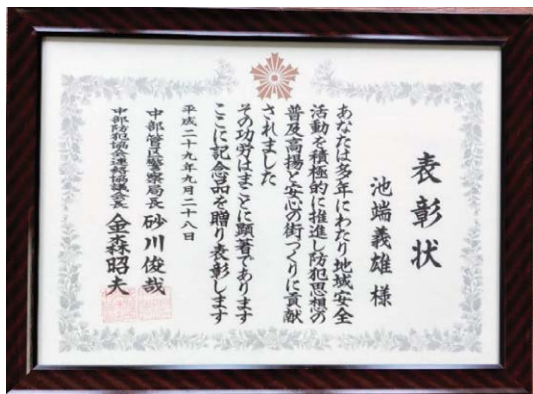 表彰状
池端義雄 様
あなたは多年にわたり地域安全
活動を積極的に推進し防犯思想の
普及高揚と安心の街づくりに貢献
されました
その功労はまことに顕著であります
ここに記念品を贈り表彰します
平成二十九年九月二十八日
中部管区警察局長 砂川俊哉
中部防犯協会連絡協議会長 金森昭夫